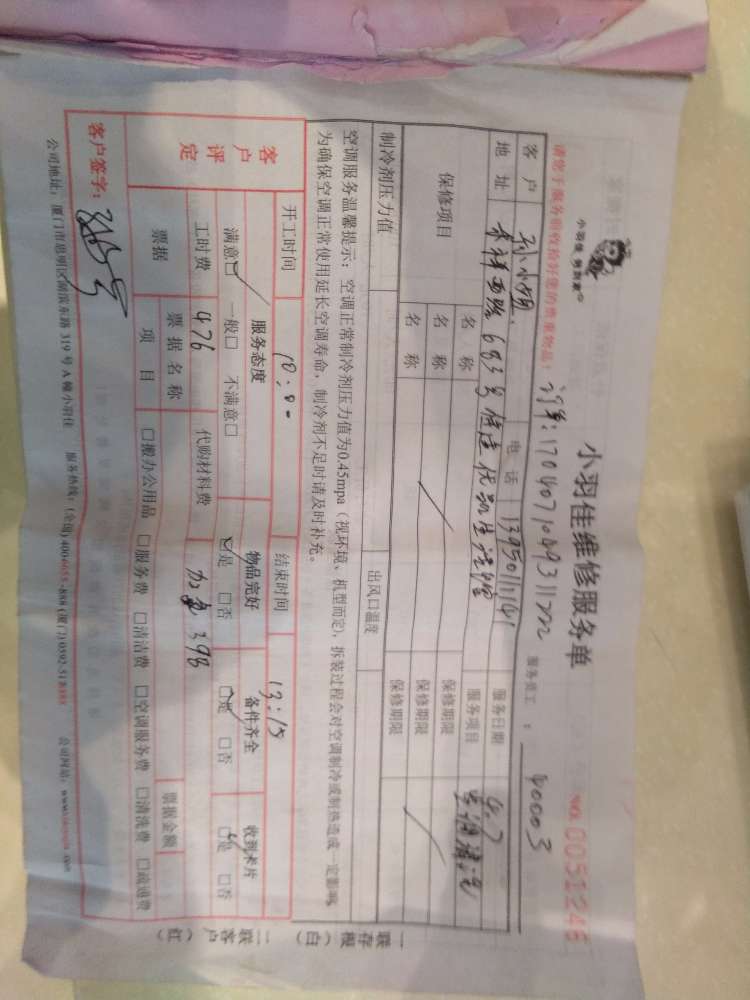 小羽佳 到到家
小羽佳维修服务单
NO. 0051246
请您于服务前收拾好您的贵重物品!
订单:17040710493111222
服务员工: 40003
客户 孙小姐 电话 13950111141 服务日期 4.7
地址 禾祥西路683号 服务项目 空调清洗
保修项目 名称 保修期限
名称 保修期限
名称 保修期限
制冷剂压力值 出风口温度
空调服务温馨提示:空调正常制冷剂压力值为0.45mpa(视环境、机型而定),拆装过程会对空调制冷或制热造成一定影响,
为确保空调正常使用延长空调寿命,制冷剂不足时请及时补充。
开工时间 10:00 结束时间 13:15
客户评定 服务态度 物品完好 备件齐全 收到卡片
满意□ 一般□ 不满意□ □是 □否 □是 □否 □是 □否
工时费 476 代购材料费 398
票据 票据名称 票据金额
项目 □搬办公用品 □服务费 □清洁费 □空调服务费 □清洗费 □疏通费
客户签字:
公司地址:厦门市思明区湖滨东路319号A幢小羽佳 服务热线:(全国)400-6655-888 (厦门)0592-5118888 公司网站:
一联存根(白) 二联客户(红)